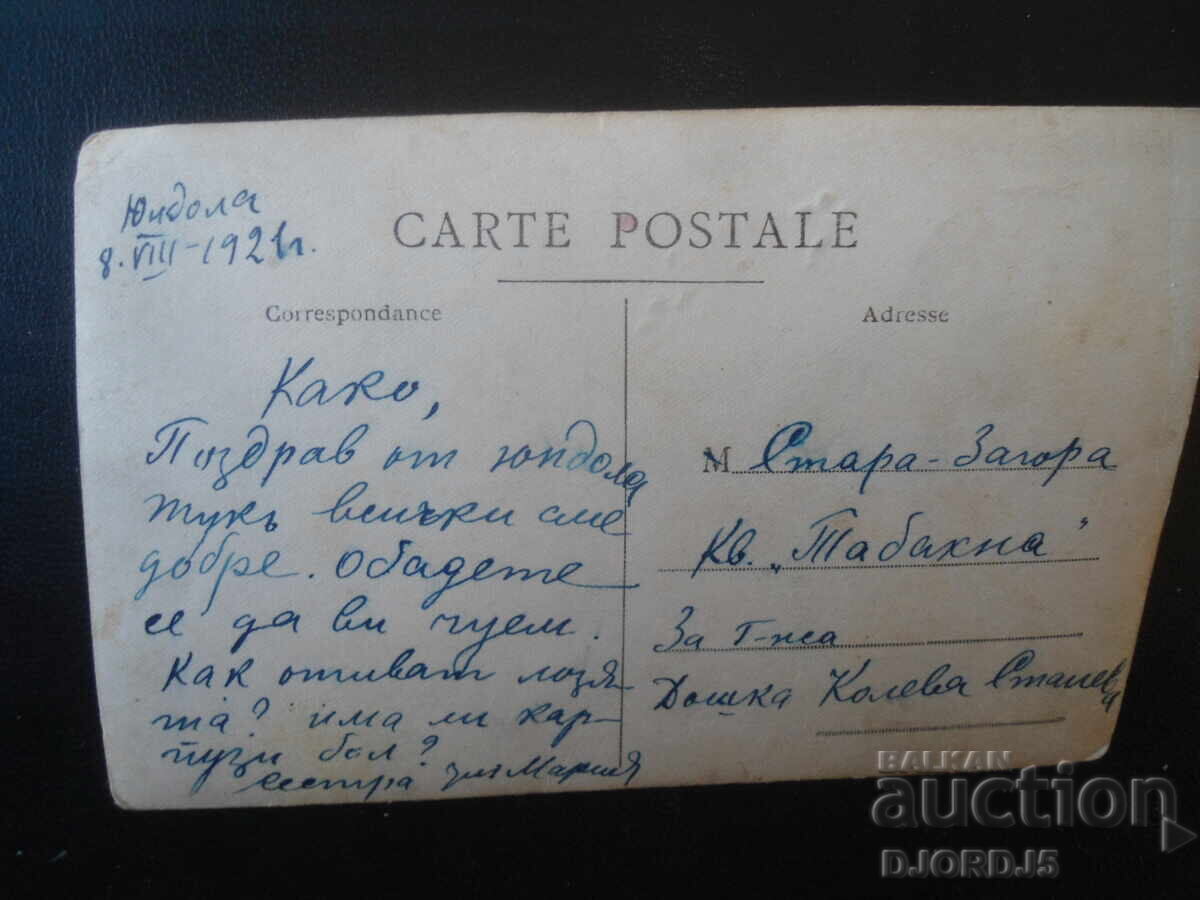 Юндола
8.VIII-1921г.
CARTE POSTALE
Correspondance
Како,
Поздрав от Юндола
тукъ всички сме
добре. Обадете
се да ви чуем.
Как отиват лозя-
та? има ли кар-
пузи бол?
сестра ти Мария
Adresse
M Стара-Загора
Кв. „Табахна"
За Г-жа
Дошка Колева Станева
BALKAN
auction
DJORDJ5